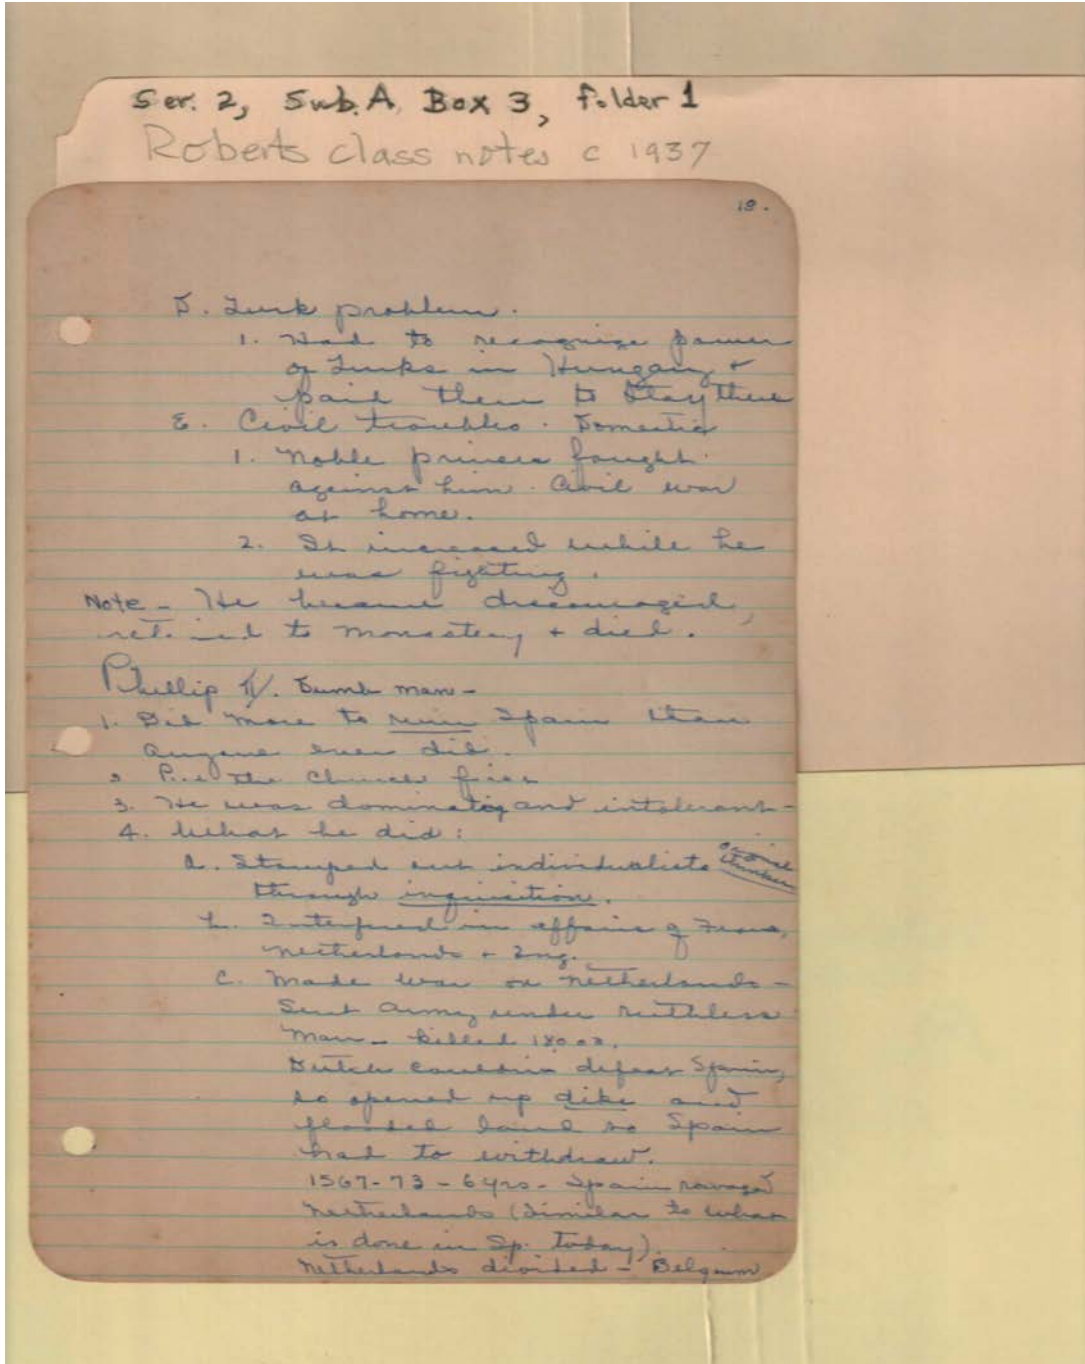 Ser. 2, Sub. A, Box 3, folder 1
Roberts class notes c 1937
18.
D. Turk problem.
1. Had to recognize power
of Turks in Hungary +
paid them to stay there
E. Civil troubles. Domestic
1. Noble princes fought
against him. Civil war
at home.
2. It increased while he
was fighting.
Note - He became discouraged,
retired to monastery + died.
Phillip II. Dumb man-
1. Did more to ruin Spain than
anyone ever did.
2 Put the Church first
3. He was dominating and intolerant-
4. What he did:
a. Stamped out individualists
through inquisition.
b. Interfered in affairs of France,
Netherlands + Eng.
c. Made war on Netherlands -
Sent army under ruthless
man - killed 18000.
Dutch couldn't defeat Spain,
so opened up dike and
flooded land so Spain
had to withdraw.
1567-73 - 6 yrs - Spain ravaged
Netherlands (Similar to what
is done in Sp. today).
Netherlands divided - Belgium